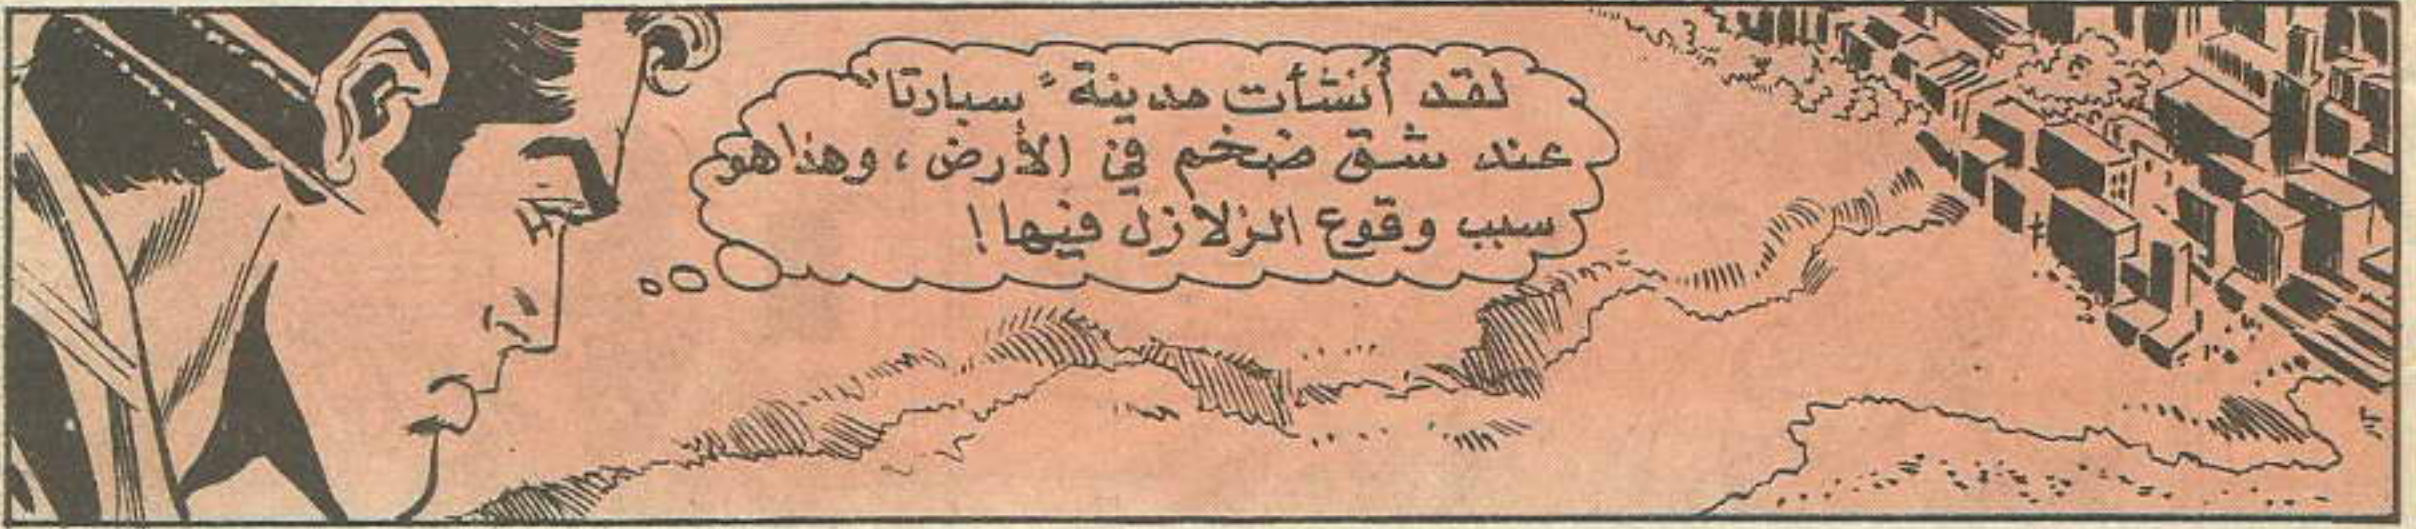 لقد أُنشأت مدينة "سبارتا"
عند شق ضخم في الأرض، وهذا هو
سبب وقوع الزلازل فيها!